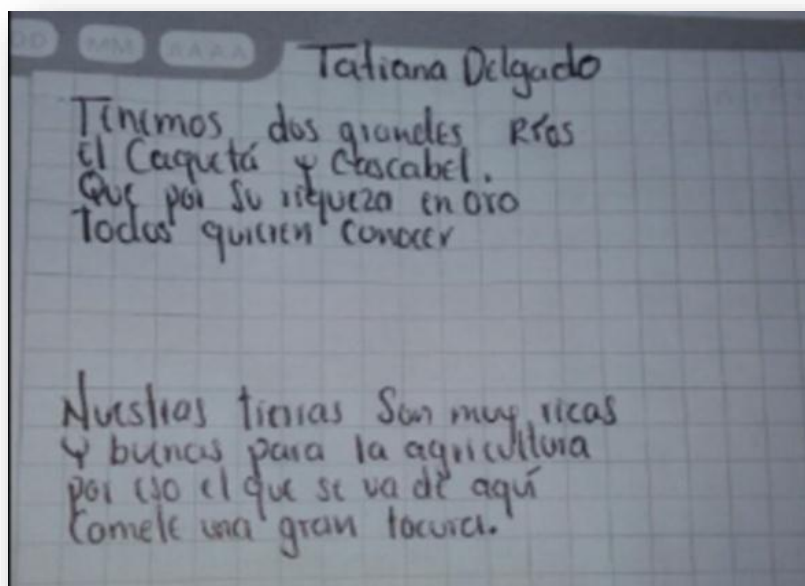 DD MM AAAA
Tatiana Delgado
Tenemos dos grandes Ríos
El Caquetá y Cascabel.
Que por su riqueza en oro
Todos quieren conocer
Nuestras tierras Son muy ricas
Y buenas para la agricultura
por eso el que se va de aquí
Comete una gran locura.